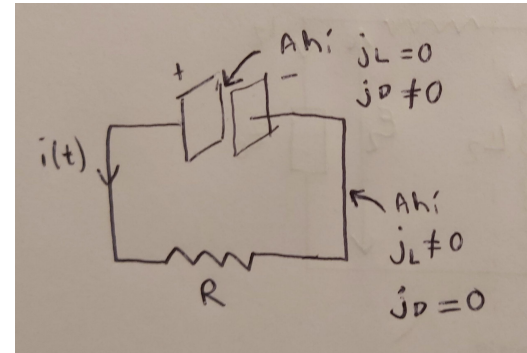 Ahí jL = 0
+ -
jD ≠ 0
i(t)
Ahí
jL ≠ 0
R
jD = 0